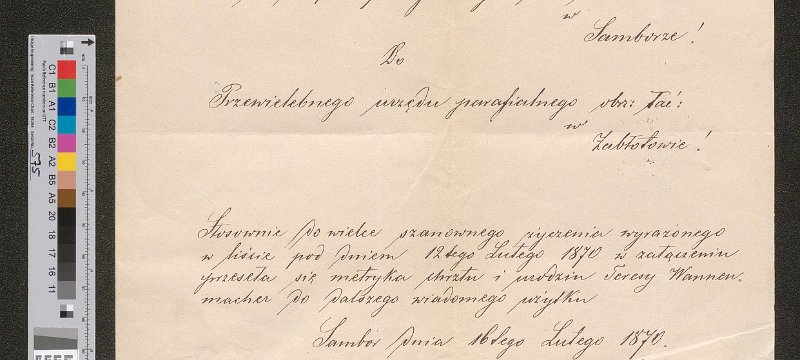 w
Samborze!
Do
Przewielebnego urzędu parafialnego obrz: łać:
w
Zabłotowie!
Stosownie do wielce szanownego życzenia wyrażonego
w liście pod dniem 12tego Lutego 1870 w załączeniu
przeseła się metryka chrztu i urodzin Teresy Wannen-
macher do dalszego wiadomego użytku
Sambor dnia 16tego Lutego 1870.
575
C1
B1
A1
C2
B2
A2
B5
A5
20
18
17
16
11